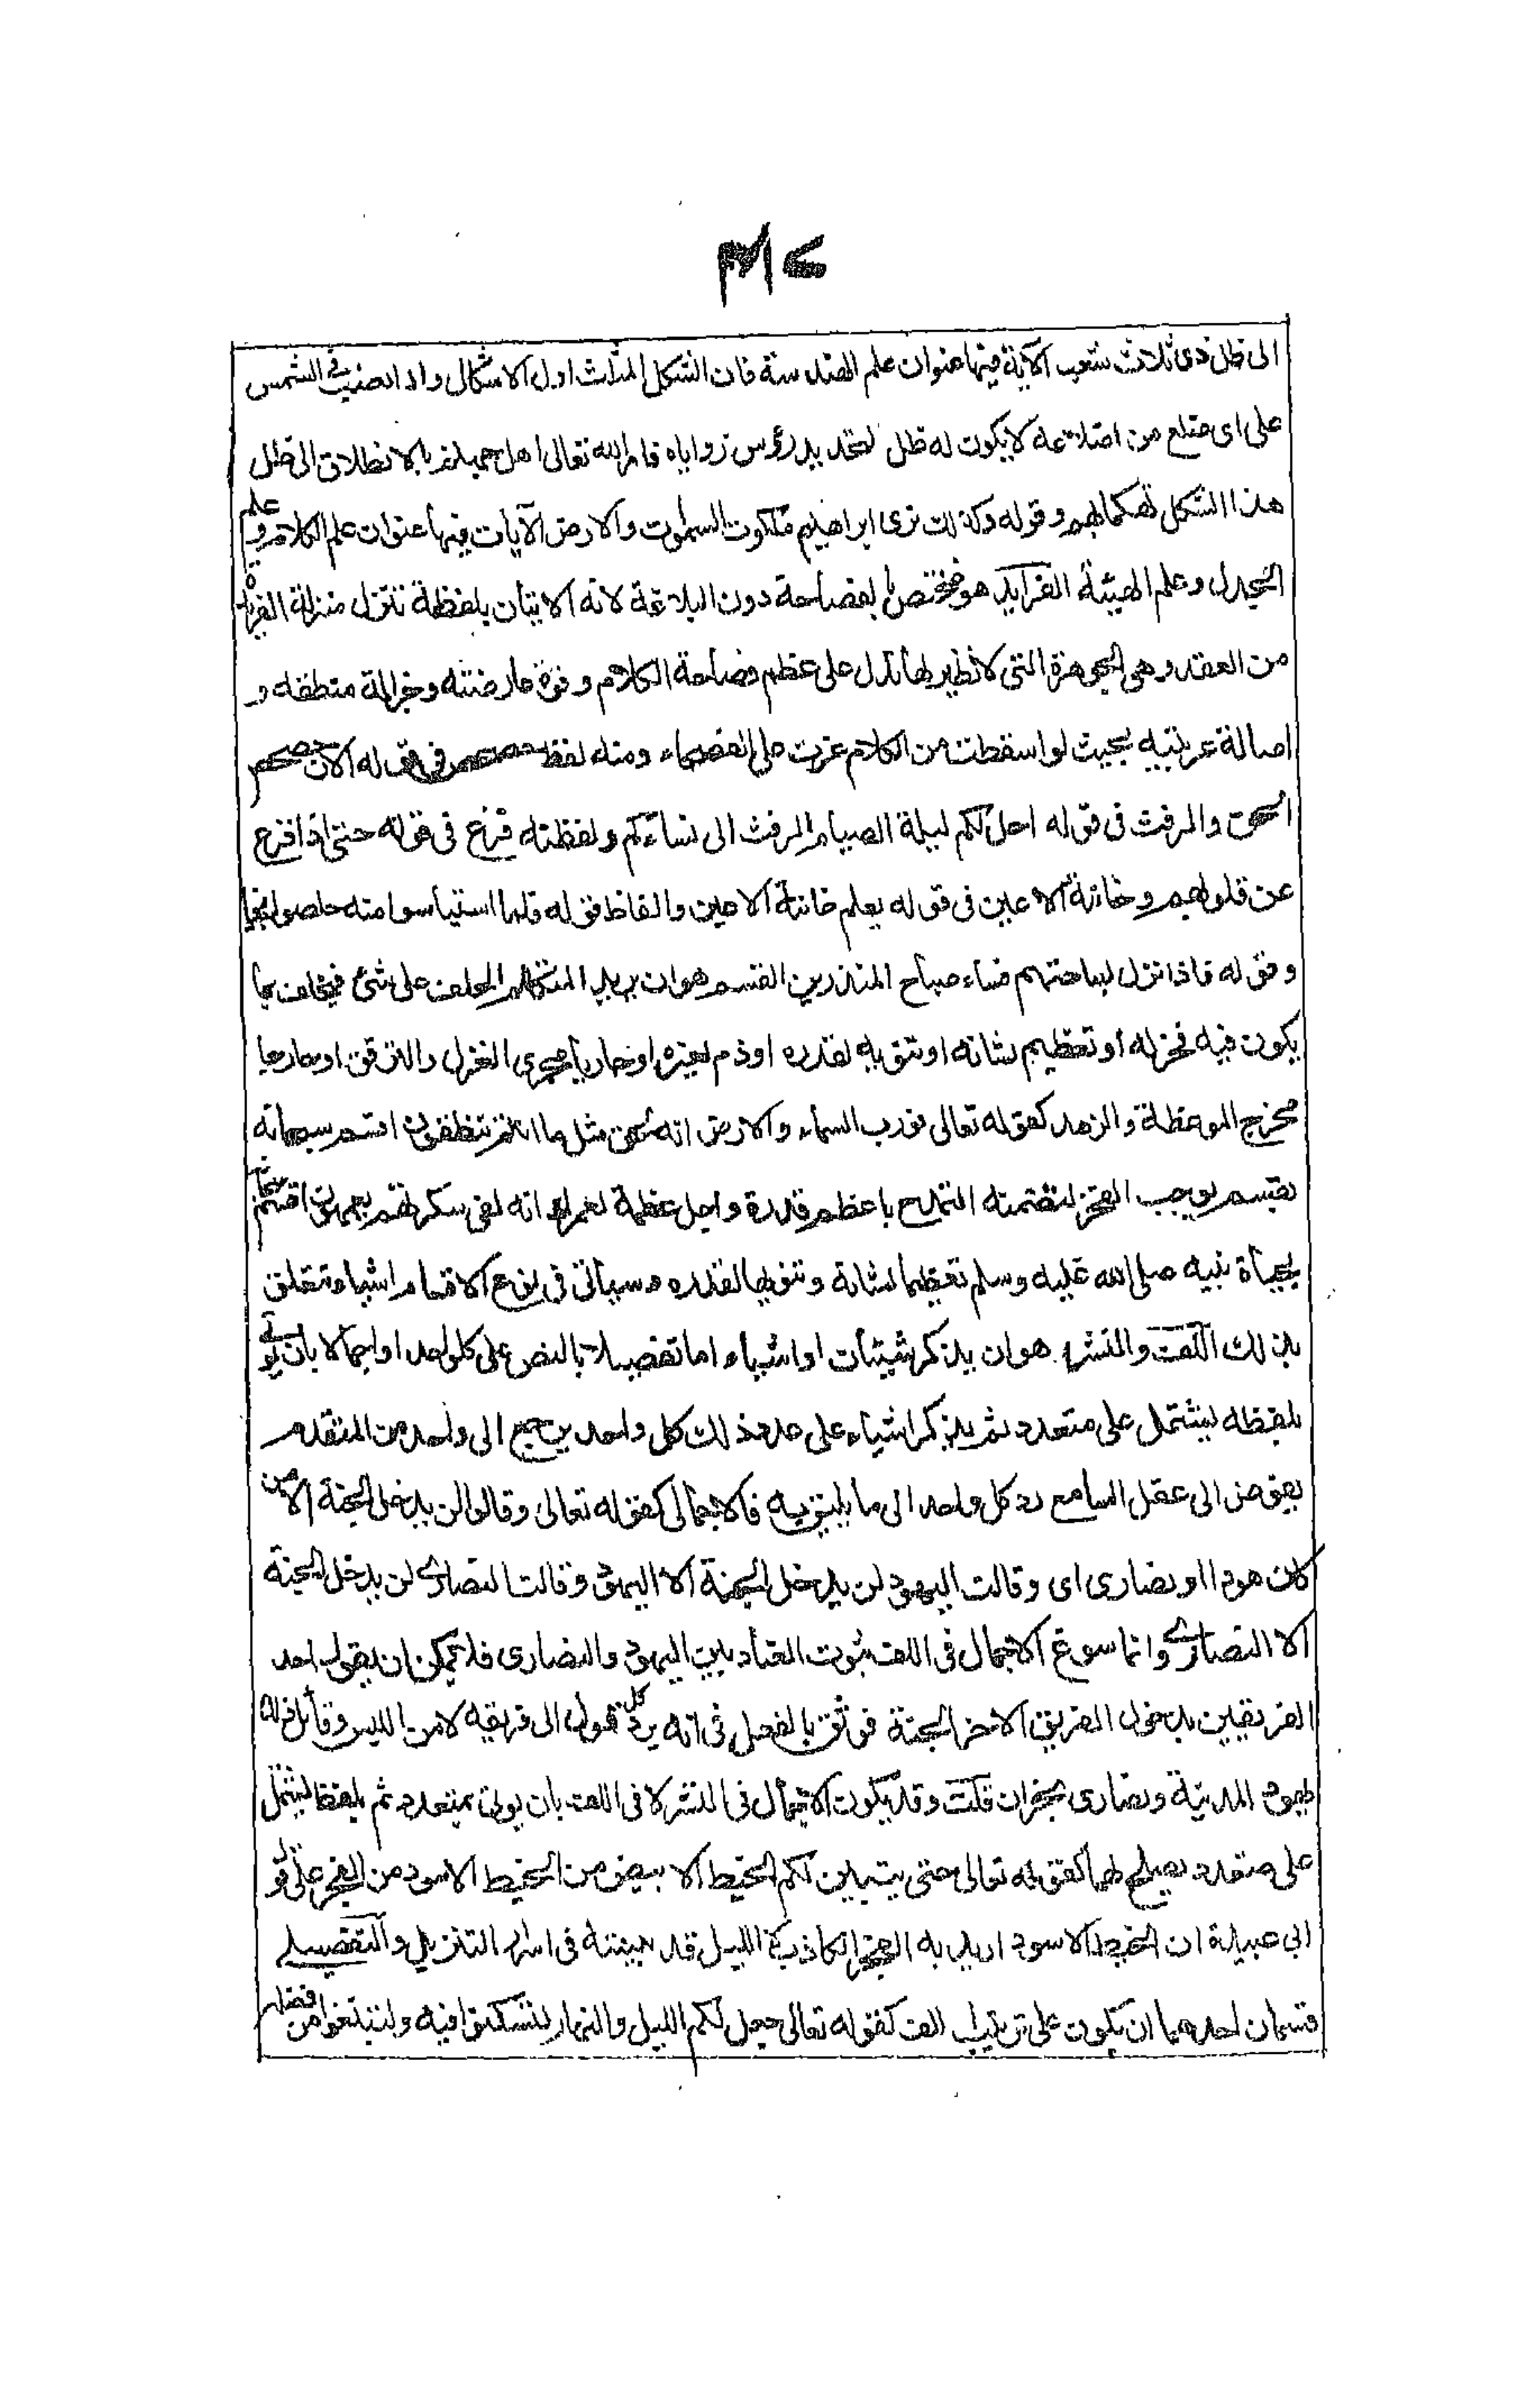 الى ظل ذى ثلاث شعب الآية فيها عنوان علم الهندسة فان الشكل المثلث اول الاشكال واذا نصب فى الشمس
على اى ضلع من اضلاعه لا يكون له ظل لتحديد رؤس زواياه فامر الله تعالى اهل جهنم بالانطلاق الى ظل
هذا الشكل تهكما بهم وقوله وكذلك نرى ابراهيم ملكوت السموت والارض الآيات فيها عنوان علم الكلام و علم
الجدل وعلم الهيئة الفرائد هو مختص بالفصاحة دون البلاغة لانه الاتيان بلفظة تتنزل منزلة الفريدة
من العقد وهى الجوهرة التى لا نظير لها تدل على عظم فصاحة الكلام وقوة عارضته وجزالة منطقه و
اصالة عربيته بحيث لو اسقطت من الكلام عزت على الفصحاء ومنه لفظ حصحص فى قوله الآن حصحص
الحق والرفث فى قوله احل لكم ليلة الصيام الرفث الى نسائكم ولفظة فزع فى قوله حتى اذا فزع
عن قلوبهم وخائنة الاعين فى قوله يعلم خائنة الاعين والفاظ قوله فلما استياسوا منه خلصوا نجيا
وقوله فاذا نزل بساحتهم فساء صباح المنذرين القسم هو ان يريد المتكلم الحلف على شئ فيحلف بما
يكون فيه فخر له او تعظيم لشانه او تنويه لقدره او ذم لغيره او جاريا مجرى الغزل والترقق او خارجا
مخرج الموعظة والزهد كقوله تعالى فورب السماء والارض انه لحق مثل ما انكم تنطقون اقسم سبحانه
بقسم يوجب الفخر لتضمنه التمدح باعظم قدرة واجل عظمة لعمرك انهم لفى سكرتهم يعمهون اقسم سبحانه
بحياة نبيه صلى الله عليه وسلم تعظيما لشانه وتنويها لقدره وسياتى فى نوع الاقسام اشياء تتعلق
بذلك اللف والنشر هو ان يذكر شيئان او اشياء اما تفصيلا بالنص على كل واحد او اجمالا بان يؤتى
بلفظه يشتمل على متعدد ثم يذكر اشياء على عدد ذلك كل واحد يرجع الى واحد من المتقدم
يفوض الى عقل السامع رد كل واحد الى ما يليق به فالاجمالى كقوله تعالى وقالوا لن يدخل الجنة الا من
كان هودا او نصارى اى وقالت اليهود لن يدخل الجنة الا اليهود وقالت النصارى لن يدخل الجنة
الا النصارى وانما سوغ الاجمال فى اللف ثبوت العناد بين اليهود والنصارى فلا يمكن ان يقول احد
الفريقين بدخول الفريق الآخر الجنة فوثق بالعقل فى انه يرد كل قول الى فريقه لامن اللبس وقائل ذلك
يهود المدينة ونصارى نجران قلت وقد يكون الاجمال فى النشر لا فى اللف بان يؤتى بمتعدد ثم بلفظ يشتمل
على متعدد يصلح لهما كقوله تعالى حتى يتبين لكم الخيط الابيض من الخيط الاسود من الفجر على قول
ابى عبيدة ان الخيط الاسود اريد به الفجر الكاذب لا الليل قد بينته فى اسرار التنزيل والتفصيلى
قسمان احدهما ان يكون على ترتيب اللف كقوله تعالى جعل لكم الليل والنهار لتسكنوا فيه ولتبتغوا من فضله